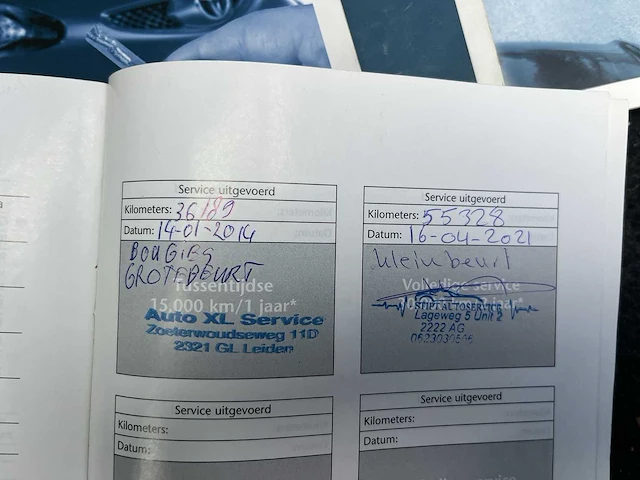 Service uitgevoerd
Kilometers: 36189
Datum: 14-01-2014
BOUGIES
GROTEBEURT
Tussentijdse
15.000 km/1 jaar*
Auto XL Service
Zoeterwoudseweg 11D
2321 GL Leiden
Service uitgevoerd
Kilometers: 55328
Datum: 16-04-2021
kleinbeurt
Volledige service
STIPT AUTOSERVICE
Lageweg 5 Unit 2
2222 AG
Service uitgevoerd
Kilometers:
Datum:
Service uitgevoerd
Kilometers:
Datum: